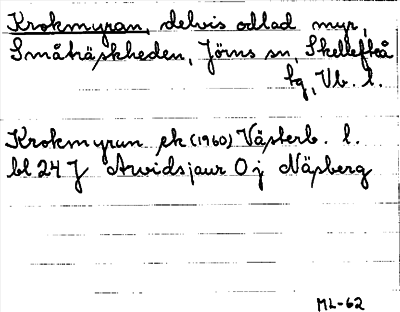 Krokmyran, delvis odlad myr,
Småträskheden, Jörns sn, Skellefteå
tg, Vb. l.
Krokmyran ek (1960) Västerb. l.
bl 24 J Arvidsjaur 0 j Näsberg
ML-62